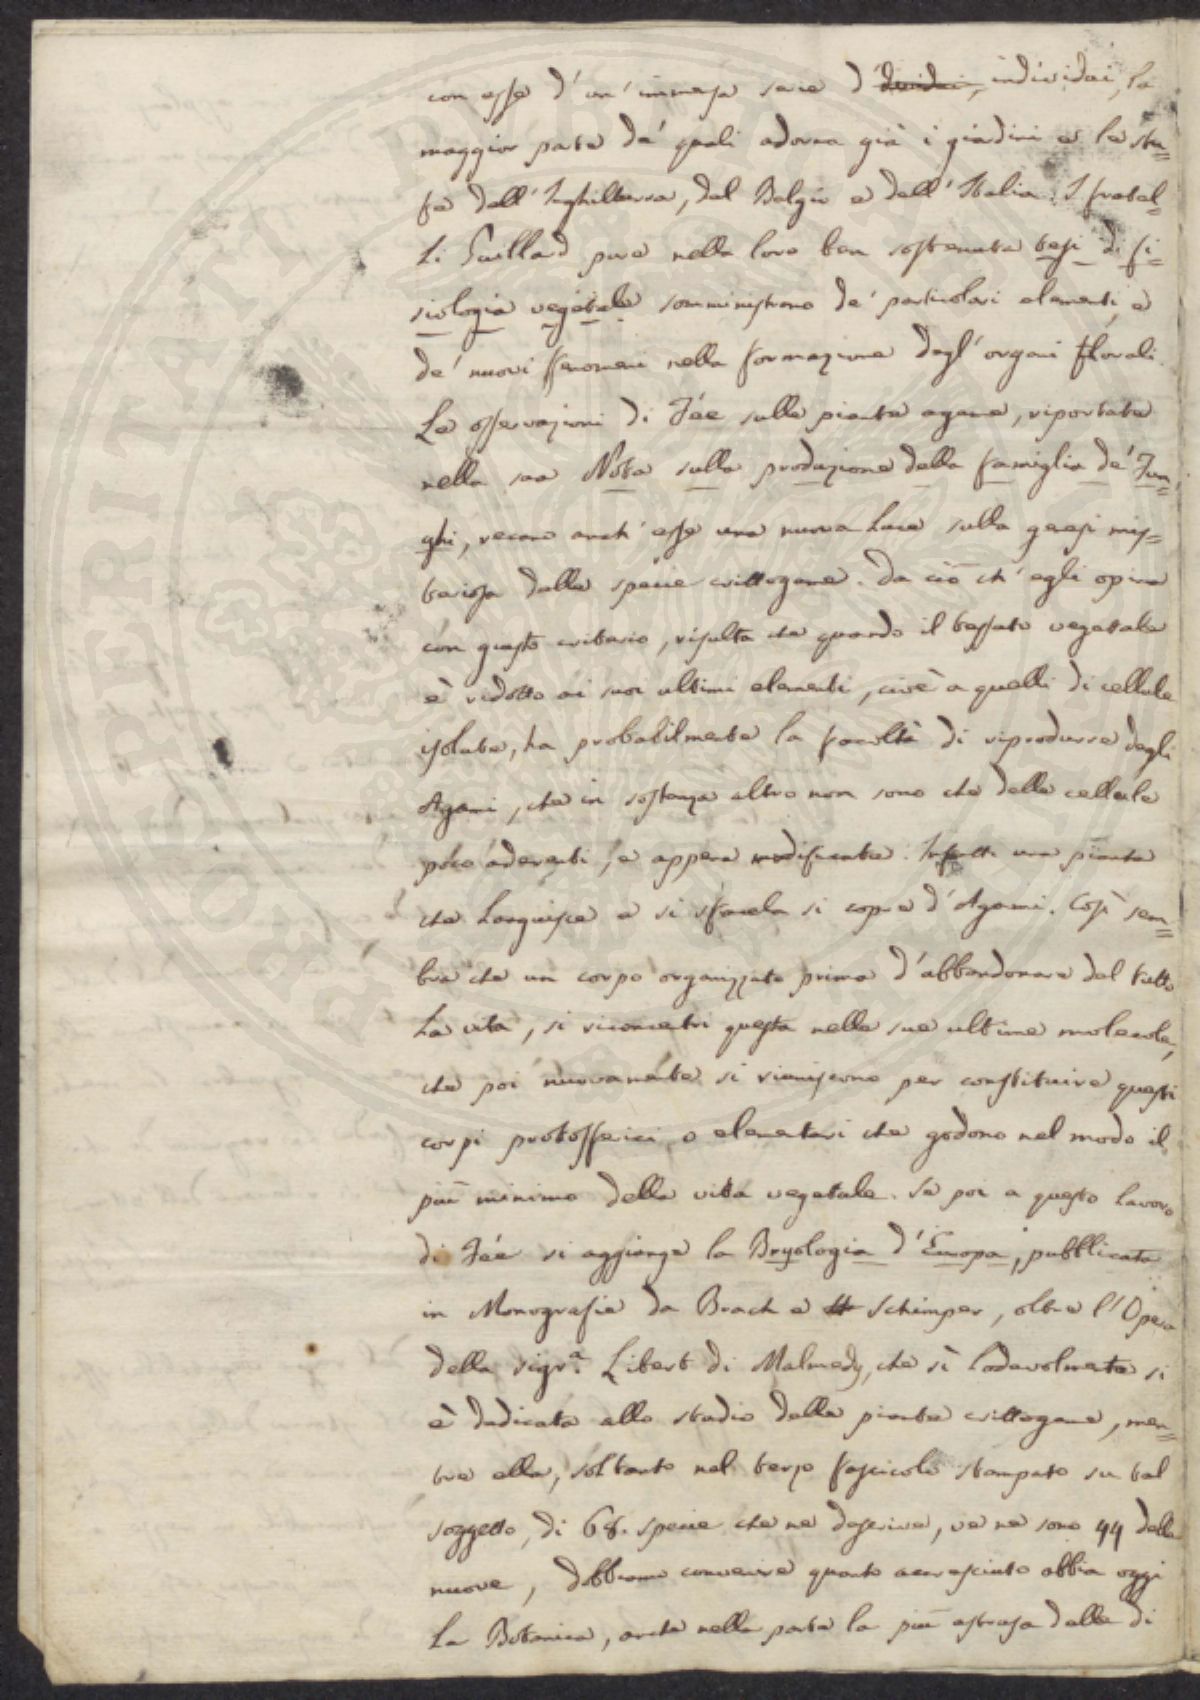 con esse d'un'immensa serie d'dividui, individui, la
maggior parte de' quali adorna già i giardini e le stu=
fe dell'Inghilterra, del Belgio e dell'Italia. I fratel=
li Guillard pure nella loro ben sostenuta tesi di fi=
siologia vegetale somministrano de' particolari elementi, e
de' nuovi fenomeni nella formazione degl'organi florali.
Le osservazioni di Fée sulle piante agame, riportate
nella sua Nota sulla produzione della famiglia de' Fun=
ghi, recano anch'esse una nuova luce sulla genesi mis=
teriosa delle specie crittogame. Da ciò ch'egli opina
con giusto criterio, risulta che quando il tessuto vegetale
è ridotto ai suoi ultimi elementi, cioè a quelli di cellule
isolate, ha probabilmente la facoltà di riprodurre degli
Agami, che in sostanza altro non sono che delle cellule
poco aderenti, e appena modificate. Infatti una pianta
che languisce e si sfacela si copre d'Agami. Così sem=
bra che un corpo organizzato prima d'abbandonare del tutto
la vita, si riconcentri questa nelle sue ultime molecole,
che poi nuovamente si riuniscono per constituire questi
corpi protosferici o elementari che godono nel modo il
più minimo della vita vegetale. Se poi a questo lavoro
di Fée si aggiunge la Bryologia d'Europa, pubblicata
in Monografie da Bruch e Schimper, oltre l'Opera
della sigr.a Libert di Malmedy, che sì lodevolmente si
è dedicata allo studio delle piante crittogame, men=
tre ella, soltanto nel terzo fascicolo stampato su tal
soggetto, di 68. specie che ne descrive, ve ne sono 44 delle
nuove, dobbiamo convenire quanto accresciuto abbia oggi
la Botanica, anche nella parte la più astrusa delle di